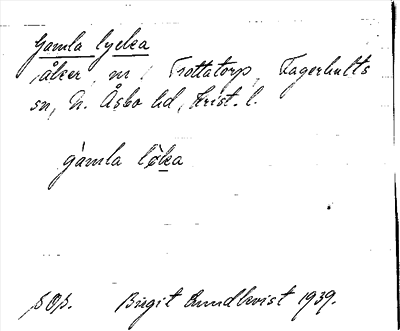 Gamla lycka
, åker, m , Trottatorp, Fagerhults
sn, N. Åsbo hd, Krist. l.
gamla lɵka
Birgit Lundkvist 1939.